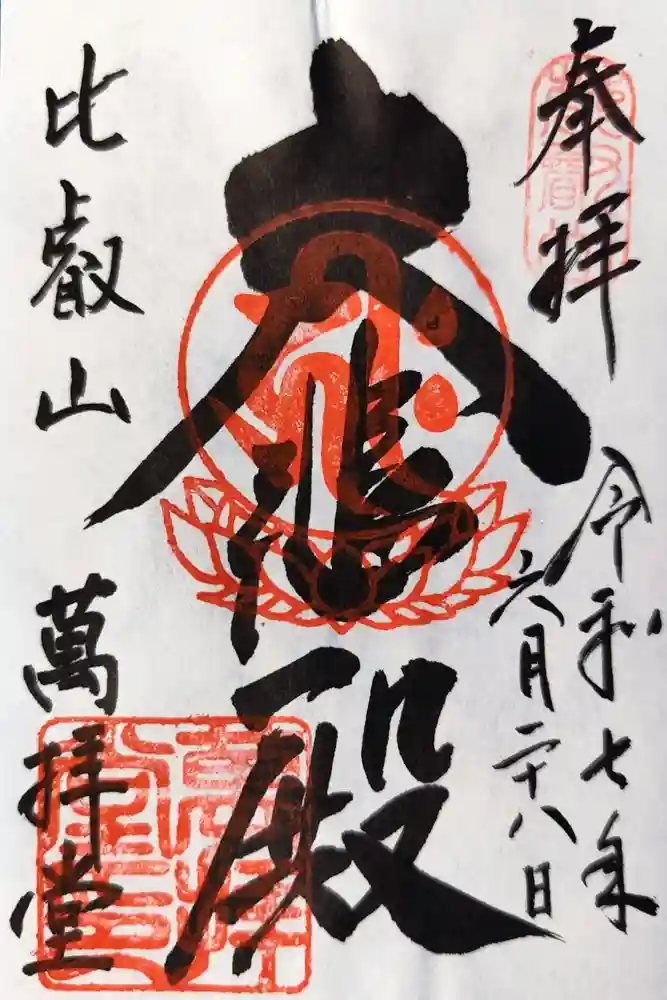 奉拝
令和七年
六月二十八日
殿
比叡山
萬拝堂